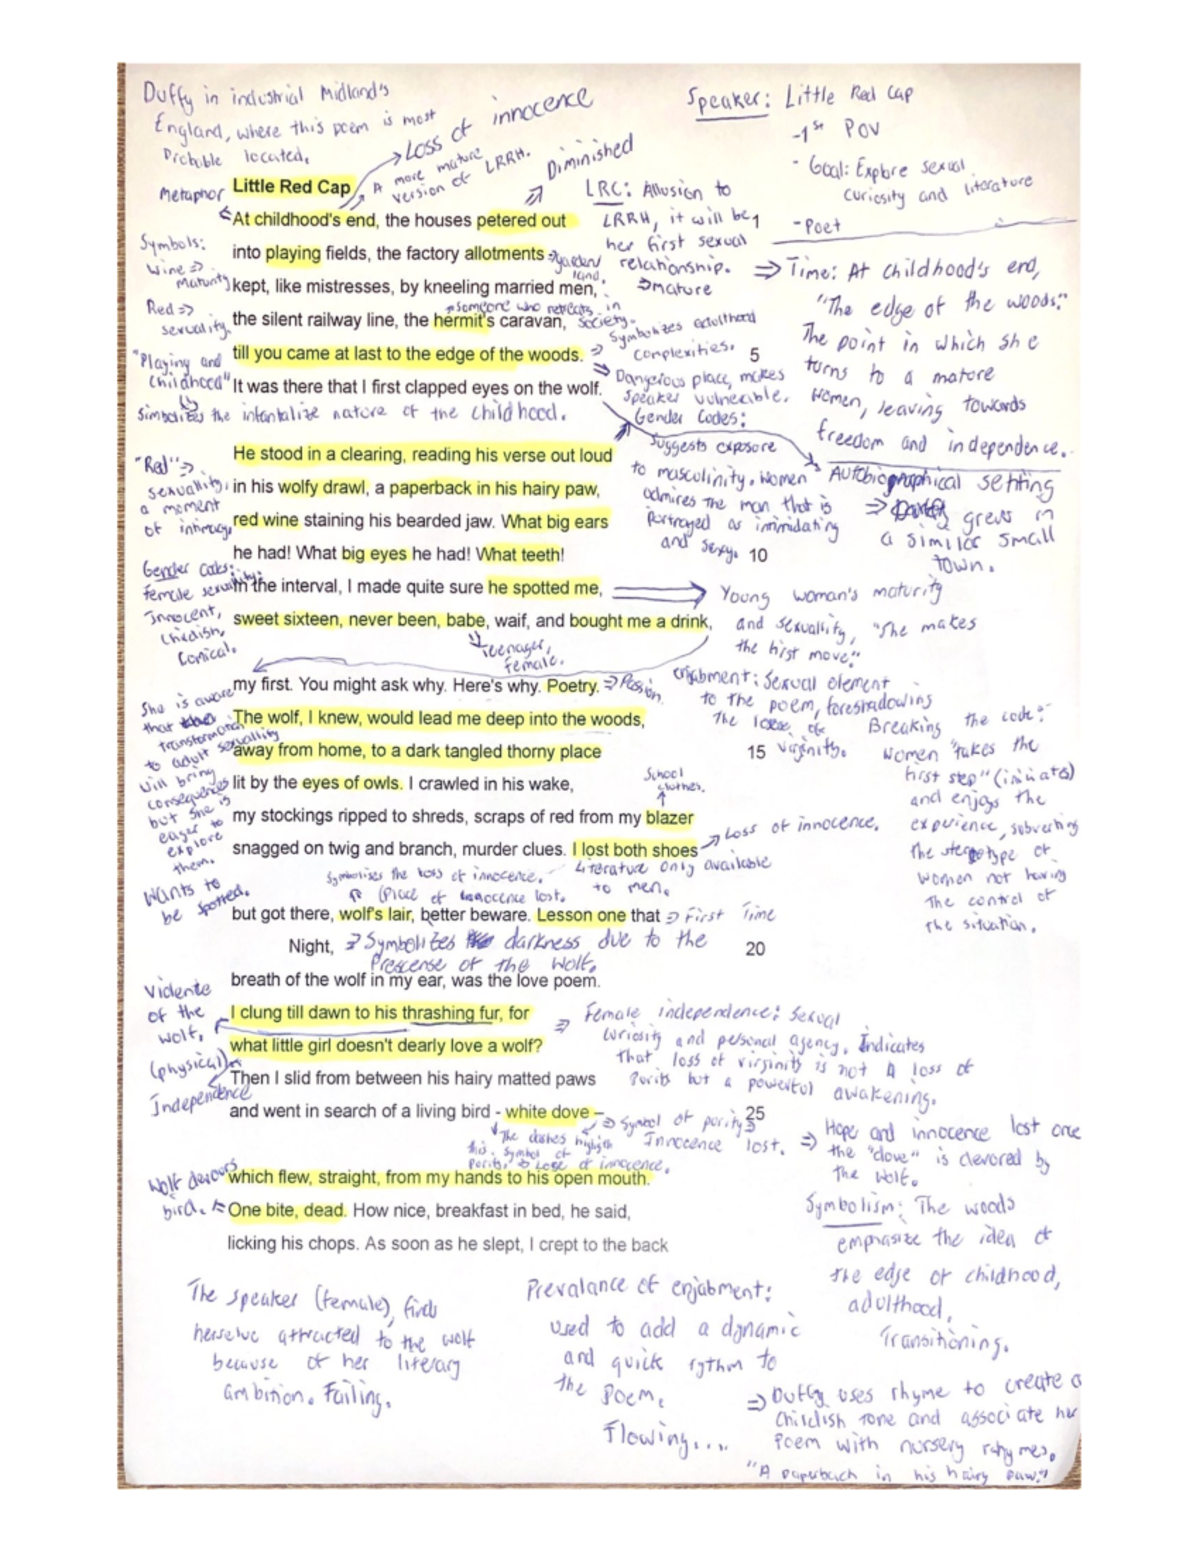 Duffy in industrial Midland's
England, where this poem is most
Probable located.
Loss of innocence
A more mature
version of LRRH.
Diminished
Speaker: Little Red Cap
-1st POV
- Goal: Explore sexual
curiosity and literature
-Poet
Metaphor
Little Red Cap
LRC: Allusion to
LRRH, it will be
her first sexual
relationship.
At childhood's end, the houses petered out 1
into playing fields, the factory allotments
garden land
kept, like mistresses, by kneeling married men,
mature
someone who retreats in
society.
the silent railway line, the hermit's caravan,
till you came at last to the edge of the woods. 5
It was there that I first clapped eyes on the wolf.
Symbols:
Wine =>
Maturity
Red =>
sexuality.
"Playing and
childhood"
Simbolizes the infantalize nature of the childhood.
Symbolizes adulthood
complexities.
Dangerous place, makes
speaker vulnerable.
Gender Codes:
Suggests exposure
to masculinity. Women
admires the man that is
portrayed as inimidating
and sexy.
=> Time: At childhood's end,
"The edge of the woods:"
The point in which she
turns to a mature
women, leaving towards
freedom and independence.
Autobiographical setting
=> grew in
a similar small
town.
He stood in a clearing, reading his verse out loud
in his wolfy drawl, a paperback in his hairy paw,
red wine staining his bearded jaw. What big ears
he had! What big eyes he had! What teeth! 10
In the interval, I made quite sure he spotted me,
sweet sixteen, never been, babe, waif, and bought me a drink,
"Red" =>
sexuallity,
a moment
of intimacy.
Gender codes:
female sexuality:
Innocent,
Childish,
Comical.
Teenager,
female.
Young woman's maturity
and sexuallity, "She makes
the first move."
my first. You might ask why. Here's why. Poetry. => Passion
The wolf, I knew, would lead me deep into the woods,
away from home, to a dark tangled thorny place 15
lit by the eyes of owls. I crawled in his wake,
my stockings ripped to shreds, scraps of red from my blazer
snagged on twig and branch, murder clues. I lost both shoes
She is aware
that
transformation
to adult sexuallity
will bring
consequences
but she is
eager to
explore
them.
Wants to
be spotted.
enjabment: Sexual element
to the poem, foreshadowing
the lose of
virginity.
Breaking the code:
Women "takes the
first step" (iniciates)
and enjoys the
experience, subverting
the stereotype of
women not having
the control of
the situation.
School
clothes.
Loss of innocence.
Literature only available
to men.
Symbolises the loss of innocence.
(Place of innocence lost.
but got there, wolf's lair, better beware. Lesson one that => First Time
Night, 20
=> Symbolizes darkness due to the
Prescense of the Wolf.
breath of the wolf in my ear, was the love poem.
I clung till dawn to his thrashing fur, for
what little girl doesn't dearly love a wolf?
Then I slid from between his hairy matted paws
and went in search of a living bird - white dove – 25
Violente
of the
wolf.
(physical)
Independence
=> Female independence: Sexual
curiosity and personal agency. Indicates
that loss of virginity is not a loss of
Purity but a powerful awakening.
=> Symbol of purity
Innocence lost.
The dashes highlight
this symbol of
Purity, to Lose of innocence.
=> Hope and innocence lost once
the "dove" is devored by
the wolf.
which flew, straight, from my hands to his open mouth.
One bite, dead. How nice, breakfast in bed, he said,
licking his chops. As soon as he slept, I crept to the back
Wolf devours
bird.
Symbolism: The woods
emphasize the idea of
the edge of childhood,
adulthood,
Transitioning.
The speaker (female), finds
herselve attracted to the wolf
because of her literary
ambition. Failing.
Prevalance of enjabment:
used to add a dynamic
and quick rythm to
the Poem.
Flowing....
=> Duffy uses rhyme to create a
Childish tone and associate her
Poem with nursery rhymes.
"A paperback in his hairy paw."